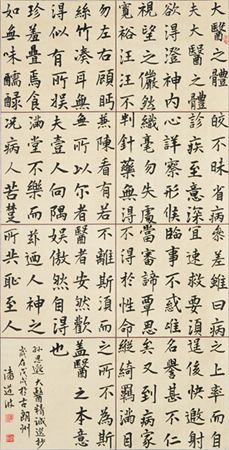 大醫之體
夫大醫之體
欲得澄神内
視望之儼然
寬裕汪汪不
皎不昧省病
診疾至意深
心詳察形候
纖毫勿失處
判針藥無得
參差雖曰病
宜速救要須
臨事不惑唯
當審諦覃思
不得於性命
之上率爾自
逞俊快邀射
名譽甚不仁
矣又到病家
縱綺羅滿目
勿左右顧眄
絲竹湊耳無
得似有所娱
珍羞疊薦食
如無味醽醁
兼陳看有若
無所以爾者
夫壹人向隅
滿堂不樂而
況病人苦楚
不離斯須而
醫者安然歡
娱傲然自得
兹迺人神之
所共恥至人
之所不為斯
蓋醫之本意
也
孫思邈大醫精誠選抄
歲在戊戌於古朗州
潘道